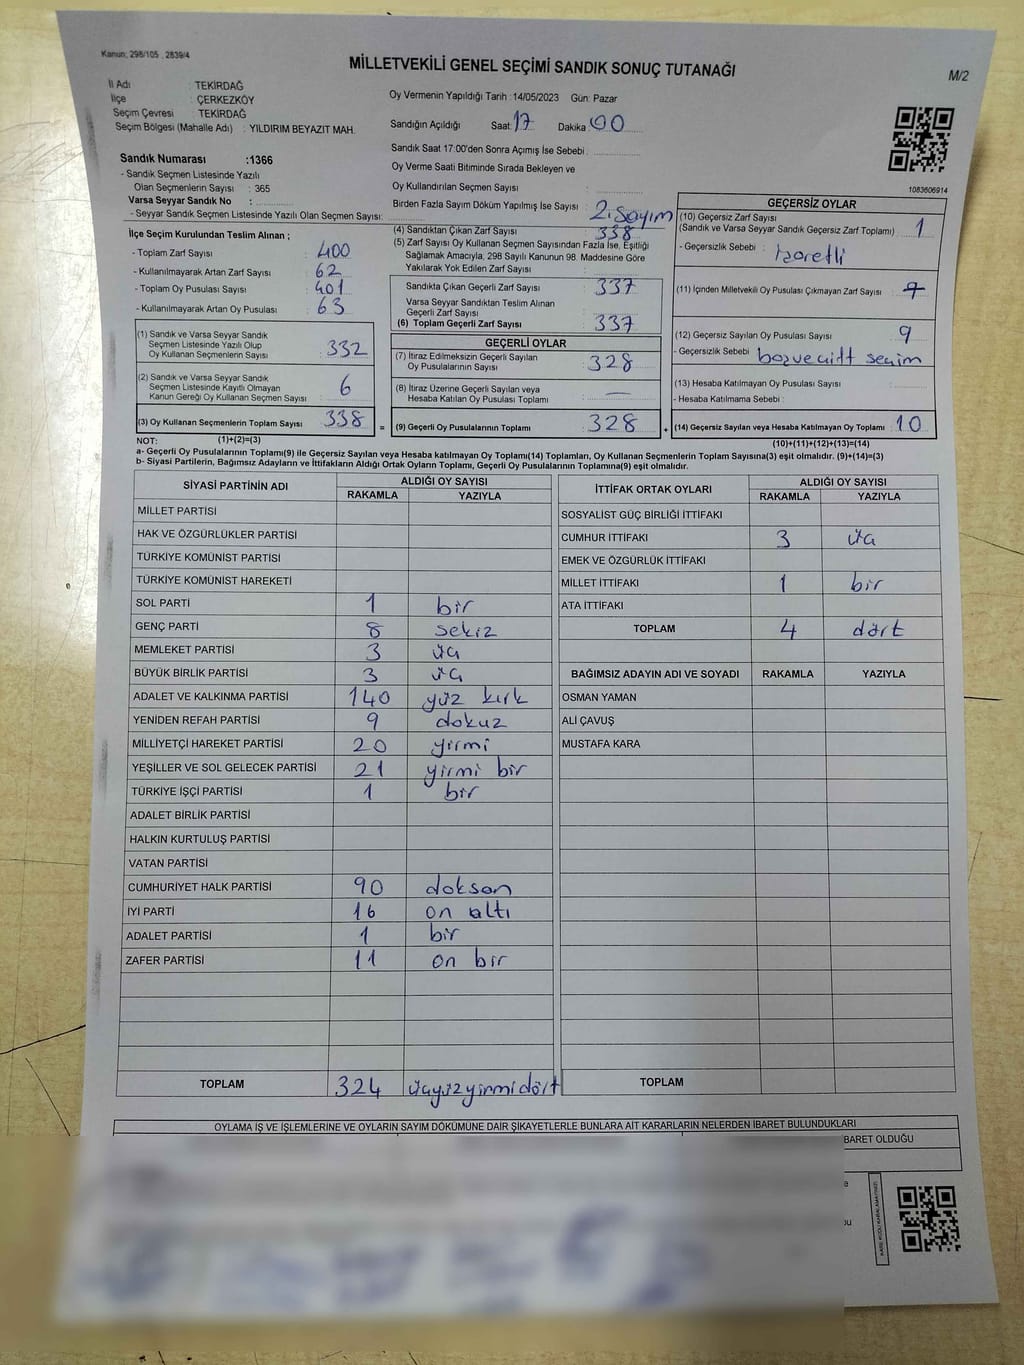 Kanun: 298/105 , 2839/4
MİLLETVEKİLİ GENEL SEÇİMİ SANDIK SONUÇ TUTANAĞI
M/2
İl Adı : TEKİRDAĞ
İlçe : ÇERKEZKÖY
Seçim Çevresi : TEKİRDAĞ
Seçim Bölgesi (Mahalle Adı) : YILDIRIM BEYAZIT MAH.
Oy Vermenin Yapıldığı Tarih :14/05/2023 Gün: Pazar
Sandığın Açıldığı Saat: 17 Dakika: 00
Sandık Saat 17:00'den Sonra Açımış İse Sebebi :
Oy Verme Saati Bitiminde Sırada Bekleyen ve
Oy Kullandırılan Seçmen Sayısı :
Birden Fazla Sayım Döküm Yapılmış İse Sayısı : 2. Sayım
1083606914
Sandık Numarası :1366
- Sandık Seçmen Listesinde Yazılı
Olan Seçmenlerin Sayısı : 365
Varsa Seyyar Sandık No :
- Seyyar Sandık Seçmen Listesinde Yazılı Olan Seçmen Sayısı:
İlçe Seçim Kurulundan Teslim Alınan ;
- Toplam Zarf Sayısı : 400
- Kullanılmayarak Artan Zarf Sayısı : 62
- Toplam Oy Pusulası Sayısı : 401
- Kullanılmayarak Artan Oy Pusulası : 63
(1) Sandık ve Varsa Seyyar Sandık
Seçmen Listesinde Yazılı Olup
Oy Kullanan Seçmenlerin Sayısı : 332
(2) Sandık ve Varsa Seyyar Sandık
Seçmen Listesinde Kayıtlı Olmayan
Kanun Gereği Oy Kullanan Seçmen Sayısı : 6
(3) Oy Kullanan Seçmenlerin Toplam Sayısı : 338 =
(4) Sandıktan Çıkan Zarf Sayısı : 338
(5) Zarf Sayısı Oy Kullanan Seçmen Sayısından Fazla İse, Eşitliği
Sağlamak Amacıyla, 298 Sayılı Kanunun 98. Maddesine Göre
Yakılarak Yok Edilen Zarf Sayısı :
Sandıkta Çıkan Geçerli Zarf Sayısı : 337
Varsa Seyyar Sandıktan Teslim Alınan
Geçerli Zarf Sayısı :
(6) Toplam Geçerli Zarf Sayısı : 337
GEÇERLİ OYLAR
(7) İtiraz Edilmeksizin Geçerli Sayılan
Oy Pusulalarının Sayısı : 328
(8) İtiraz Üzerine Geçerli Sayılan veya
Hesaba Katılan Oy Pusulası Toplamı : —
(9) Geçerli Oy Pusulalarının Toplamı : 328 +
GEÇERSİZ OYLAR
(10) Geçersiz Zarf Sayısı
(Sandık ve Varsa Seyyar Sandık Geçersiz Zarf Toplamı) : 1
- Geçersizlik Sebebi : İşaretli
(11) İçinden Milletvekili Oy Pusulası Çıkmayan Zarf Sayısı :
(12) Geçersiz Sayılan Oy Pusulası Sayısı : 9
- Geçersizlik Sebebi : boş ve çift seçim
(13) Hesaba Katılmayan Oy Pusulası Sayısı :
- Hesaba Katılmama Sebebi :
(14) Geçersiz Sayılan veya Hesaba Katılmayan Oy Toplamı : 10
NOT: (1)+(2)=(3)
(10)+(11)+(12)+(13)=(14)
a- Geçerli Oy Pusulalarının Toplamı(9) ile Geçersiz Sayılan veya Hesaba katılmayan Oy Toplamı(14) Toplamları, Oy Kullanan Seçmenlerin Toplam Sayısına(3) eşit olmalıdır. (9)+(14)=(3)
b- Siyasi Partilerin, Bağımsız Adayların ve İttifakların Aldığı Ortak Oyların Toplamı, Geçerli Oy Pusulalarının Toplamına(9) eşit olmalıdır.
SİYASİ PARTİNİN ADI ALDIĞI OY SAYISI
RAKAMLA YAZIYLA
MİLLET PARTİSİ
HAK VE ÖZGÜRLÜKLER PARTİSİ
TÜRKİYE KOMÜNİST PARTİSİ
TÜRKİYE KOMÜNİST HAREKETİ
SOL PARTİ 1 bir
GENÇ PARTİ 8 sekiz
MEMLEKET PARTİSİ 3 üç
BÜYÜK BİRLİK PARTİSİ 3 üç
ADALET VE KALKINMA PARTİSİ 140 yüz kırk
YENİDEN REFAH PARTİSİ 9 dokuz
MİLLİYETÇİ HAREKET PARTİSİ 20 yirmi
YEŞİLLER VE SOL GELECEK PARTİSİ 21 yirmi bir
TÜRKİYE İŞÇİ PARTİSİ 1 bir
ADALET BİRLİK PARTİSİ
HALKIN KURTULUŞ PARTİSİ
VATAN PARTİSİ
CUMHURİYET HALK PARTİSİ 90 doksan
İYİ PARTİ 16 on altı
ADALET PARTİSİ 1 bir
ZAFER PARTİSİ 11 on bir
TOPLAM 324 üçyüzyirmidört
İTTİFAK ORTAK OYLARI ALDIĞI OY SAYISI
RAKAMLA YAZIYLA
SOSYALİST GÜÇ BİRLİĞİ İTTİFAKI
CUMHUR İTTİFAKI 3 üç
EMEK VE ÖZGÜRLÜK İTTİFAKI
MİLLET İTTİFAKI 1 bir
ATA İTTİFAKI
TOPLAM 4 dört
BAĞIMSIZ ADAYIN ADI VE SOYADI RAKAMLA YAZIYLA
OSMAN YAMAN
ALİ ÇAVUŞ
MUSTAFA KARA
TOPLAM
OYLAMA İŞ VE İŞLEMLERİNE VE OYLARIN SAYIM DÖKÜMÜNE DAİR ŞİKAYETLERLE BUNLARA AİT KARARLARIN NELERDEN İBARET BULUNDUKLARI
BARET OLDUĞU